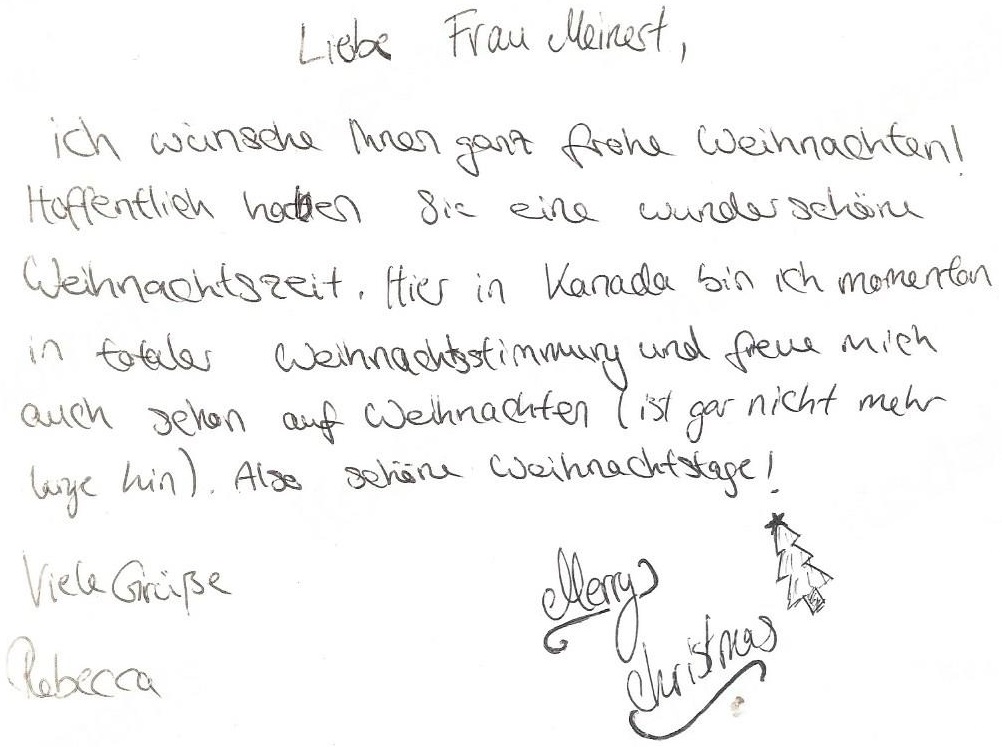 Liebe Frau Meinert,
ich wünsche Ihnen ganz frohe Weihnachten!
Hoffentlich haben Sie eine wunderschöne
Weihnachtszeit. Hier in Kanada bin ich momentan
in totaler Weihnachtsstimmung und freue mich
auch schon auf Weihnachten (ist gar nicht mehr
lange hin). Also schöne Weihnachtstage!
Viele Grüße
Rebecca
Merry
Christmas